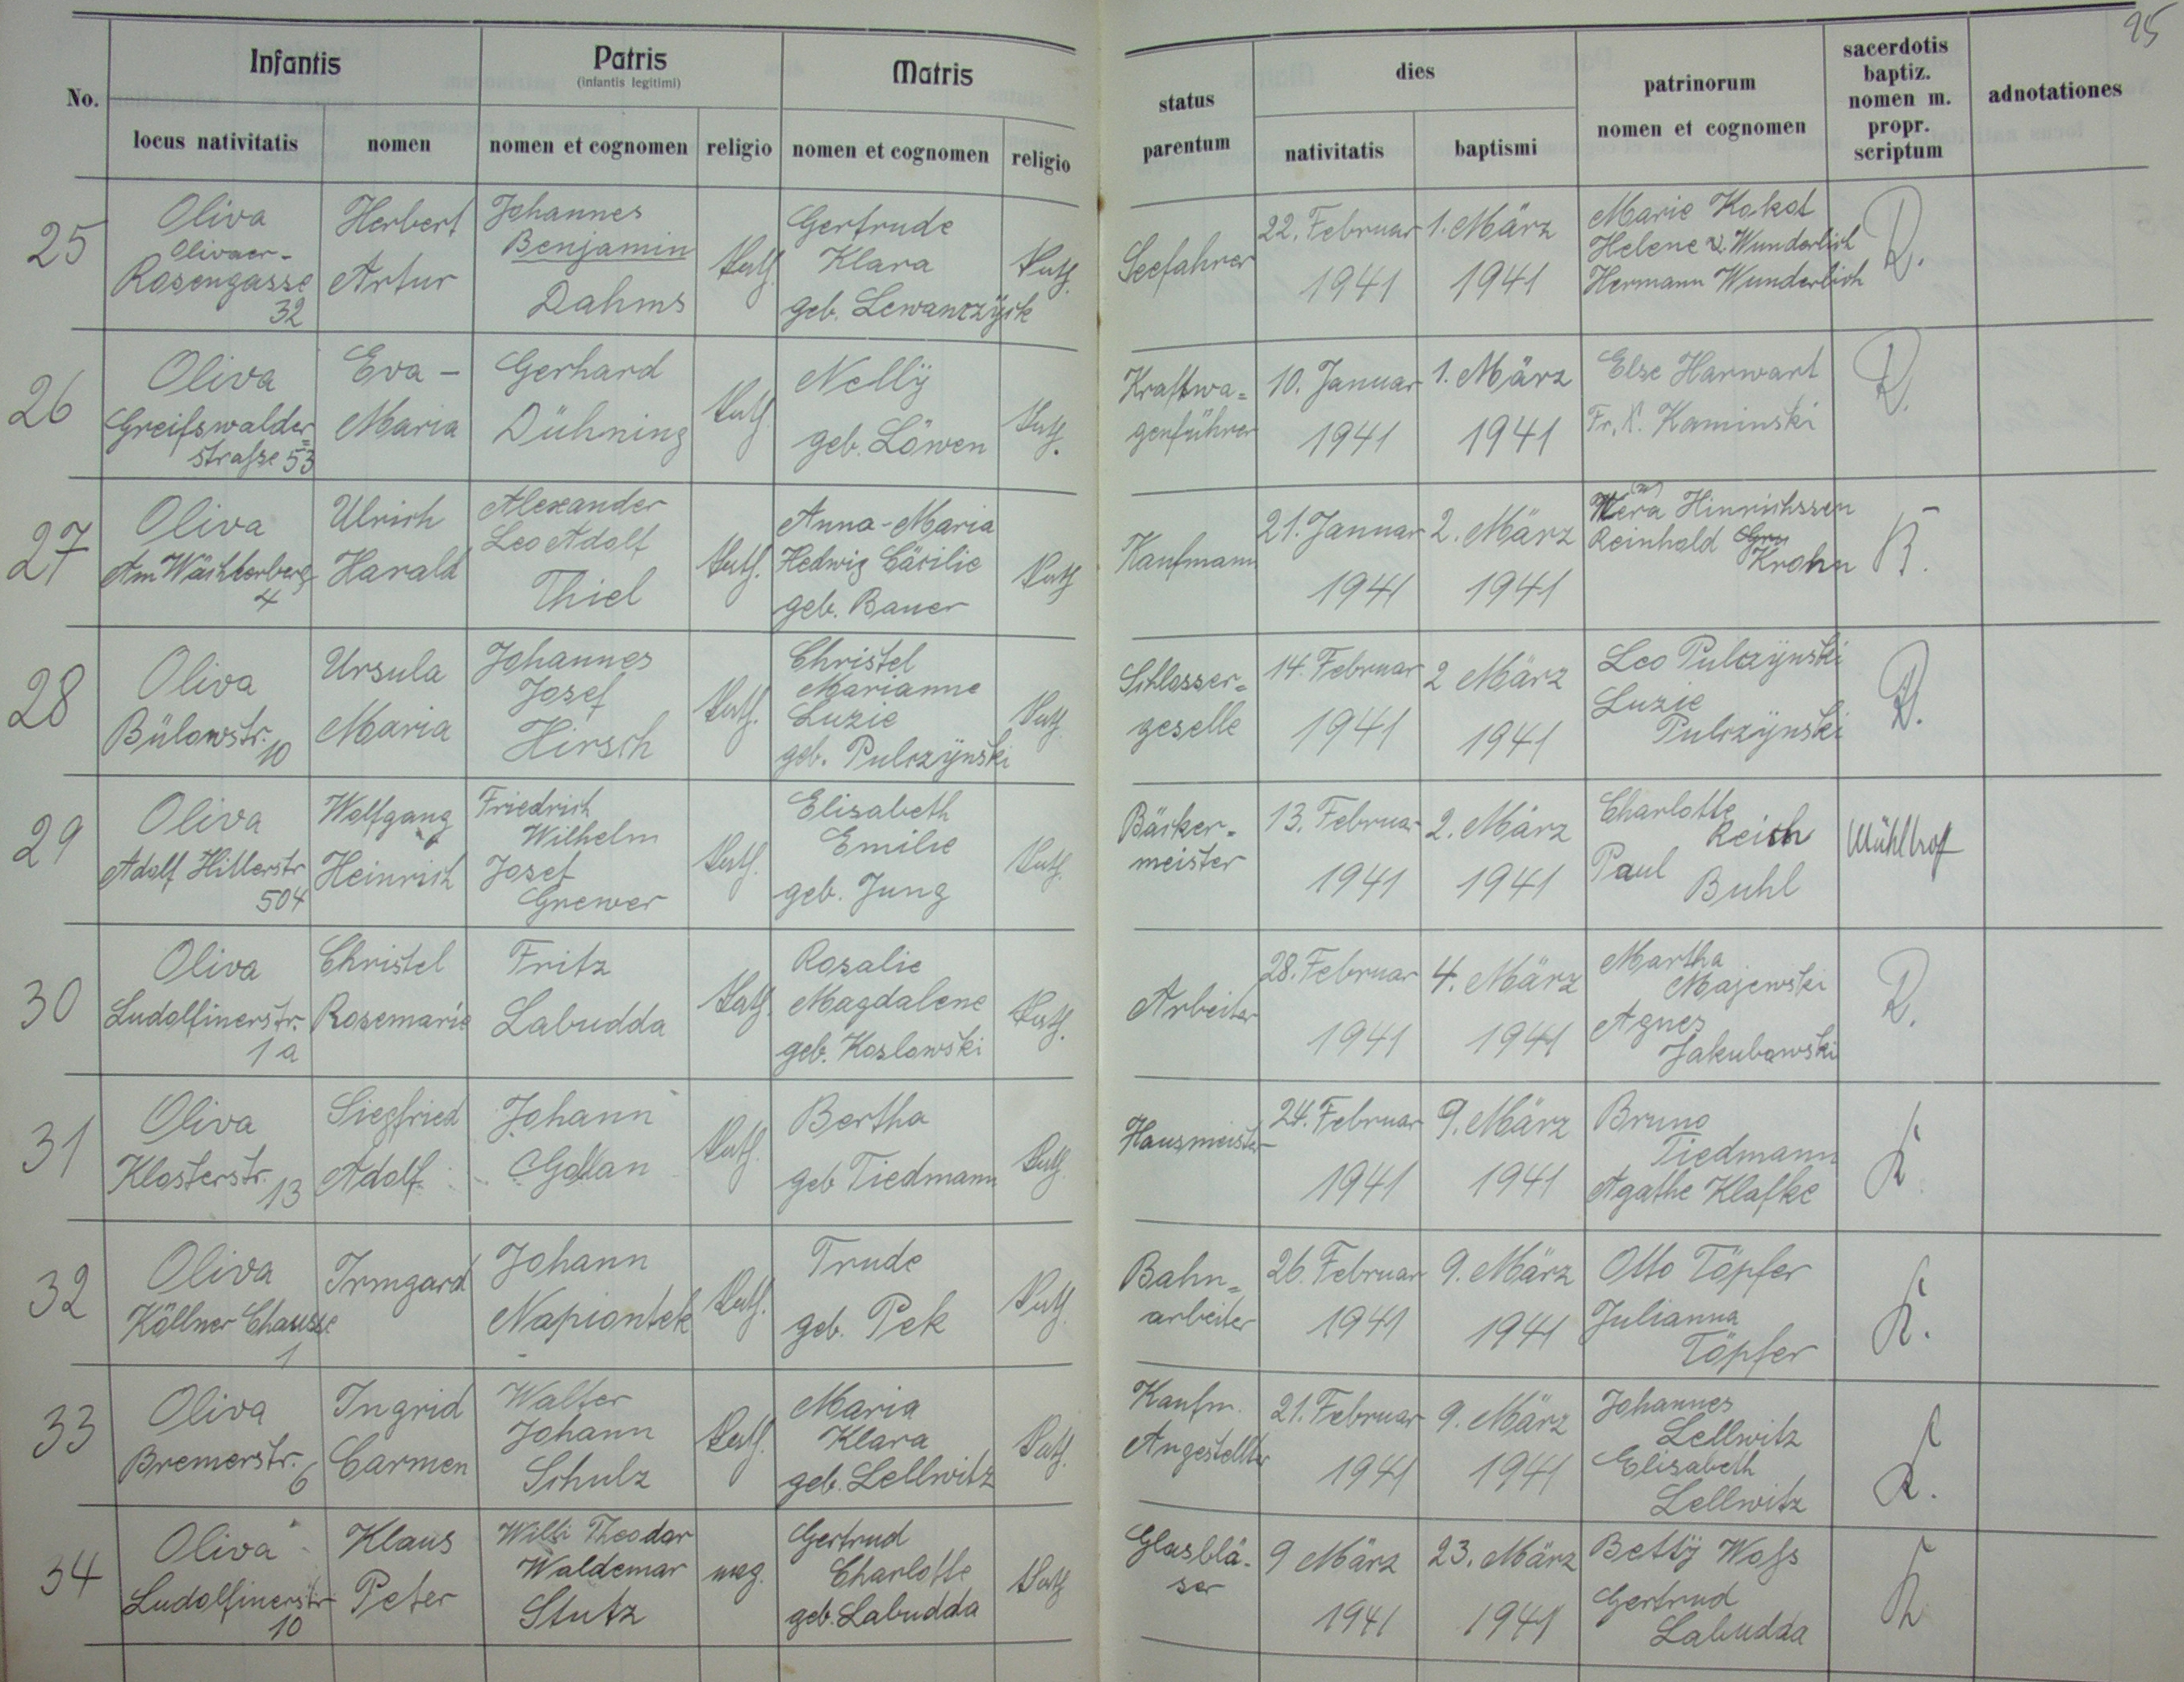 95
No.
Infantis
Patris
(infantis legitimi)
Matris
status
parentum
dies
patrinorum
nomen et cognomen
sacerdotis
baptiz.
nomen m.
propr.
scriptum
adnotationes
locus nativitatis
nomen
nomen et cognomen
religio
nomen et cognomen
religio
nativitatis
baptismi
25
Oliva
Olivaer-
Rosengasse
32
Herbert
Artur
Johannes
Benjamin
Dahms
kath.
Gertrude
Klara
geb. Lewanczÿck
kath.
Seefahrer
22. Februar
1941
1. März
1941
Marie Kakol
Helene Wunderlich
Hermann Wunderlich
26
Oliva
Greifswalder=
straße 53
Eva-
Maria
Gerhard
Dühning
kath.
Nellÿ
geb. Löwen
kath.
Kraftwa=
genführer
10. Januar
1941
1. März
1941
Else Harwart
Fr. K. Kaminski
27
Oliva
Am Wächterberg
4
Ulrich
Harald
Alexander
Leo Adolf
Thiel
kath.
Anna-Maria
Hedwig Cäcilie
geb. Bauer
kath
Kaufmann
21. Januar
1941
2. März
1941
Wera Hinrichssen
Reinhold
Krohn
28
Oliva
Bülowstr.
10
Ursula
Maria
Johannes
Josef
Hirsch
kath.
Christel
Marianne
Luzie
geb. Pulczÿnski
kath.
Schlosser=
geselle
14. Februar
1941
2 März
1941
Leo Pulczÿnski
Luzie
Pulczÿnski
29
Oliva
Adolf Hitlerstr
504
Wolfgang
Heinrich
Friedrich
Wilhelm
Josef
Grewer
kath.
Elisabeth
Emilie
geb. Jung
kath.
Bäcker-
meister
13. Februar
1941
2. März
1941
Charlotte
Reich
Paul
Buhl
Mühlhof
30
Oliva
Ludolfinerstr.
1a
Christel
Rosemarie
Fritz
Labudda
kath.
Rosalie
Magdalene
geb. Koslowski
kath.
Arbeiter
28. Februar
1941
4. März
1941
Martha
Majewski
Agnes
Jakubowski
31
Oliva
Klosterstr.
13
Siegfried
Adolf
Johann
Gollan
kath.
Bertha
geb Tiedmann
kath.
Hausmeister
24. Februar
1941
9. März
1941
Bruno
Tiedmann
Agathe Klafke
K
32
Oliva
Köllner Chausse
1
Irmgard
Johann
Napiontek
kath.
Trude
geb. Pek
kath.
Bahn=
arbeiter
26. Februar
1941
9. März
1941
Otto Töpfer
Julianna
Töpfer
K.
33
Oliva
Bremerstr.
6
Ingrid
Carmen
Walter
Johann
Schulz
kath.
Maria
Klara
geb. Lellwitz
kath.
Kaufm.
Angestellter
21. Februar
1941
9. März
1941
Johannes
Lellwitz
Elisabeth
Lellwitz
K.
34
Oliva
Ludolfinerstr
10
Klaus
Peter
Willi Theodor
Waldemar
Stutz
Gertrud
Charlotte
geb. Labudda
kath
Glasblä-
ser
9 März
1941
23. März
1941
Bettÿ Woß
Gertrud
Labudda
K